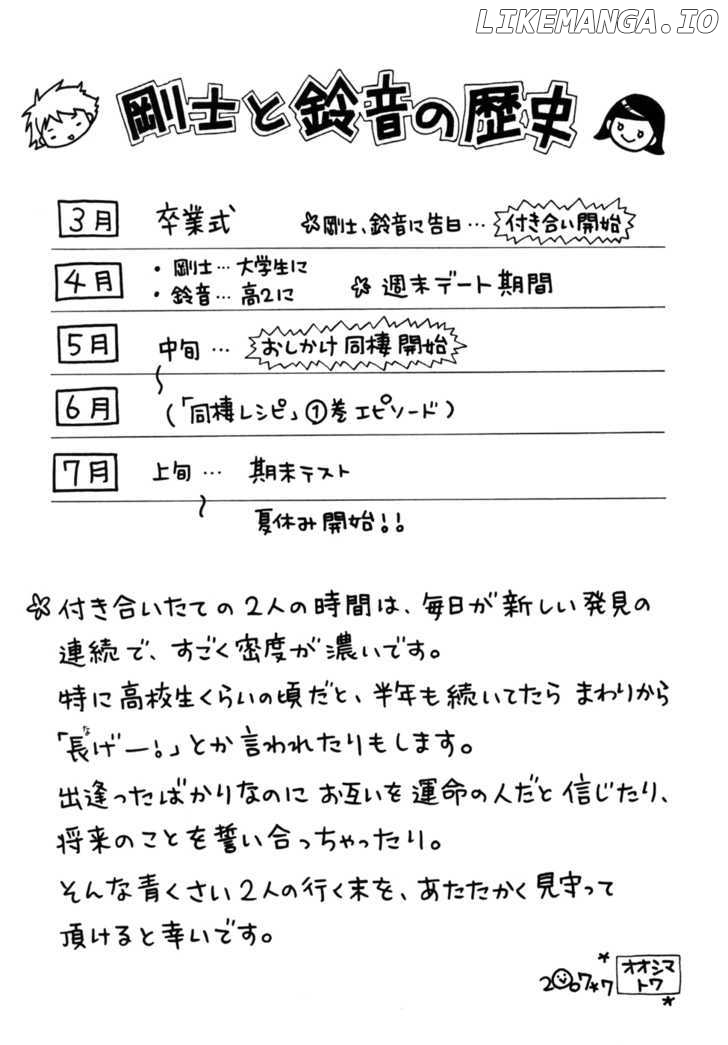 LIKEMANGA.IO
剛士と鈴音の歴史
3月 卒業式 ☆剛士、鈴音に告白… 付き合い開始
4月 ・剛士…大学生に
・鈴音…高2に ☆週末デート期間
5月 中旬… おしかけ同棲開始
〜
6月 (「同棲レシピ」①巻エピソード)
7月 上旬… 期末テスト
〜 夏休み開始!!
☆付き合いたての2人の時間は、毎日が新しい発見の
連続で、すごく密度が濃いです。
特に高校生くらいの頃だと、半年も続いてたら まわりから
「長げー!」とか言われたりもします。
な
出逢ったばかりなのに お互いを運命の人だと信じたり、
将来のことを誓い合っちゃったり。
そんな青くさい2人の行く末を、あたたかく見守って
頂けると幸いです。
2007*7 オオシマ
トワ